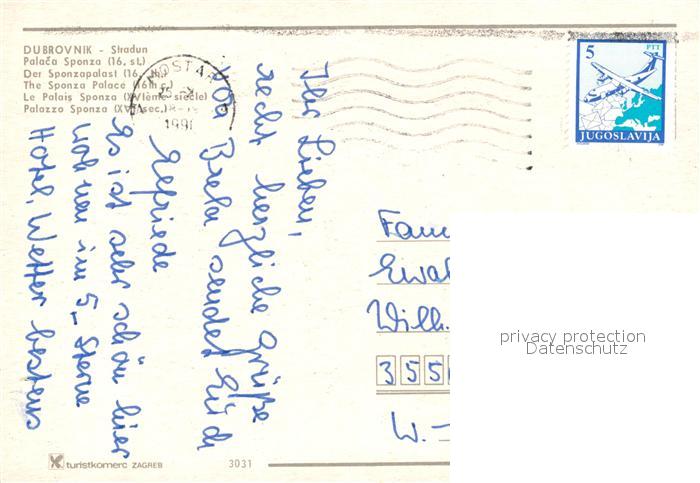 DUBROVNIK - Stradun
Palača Sponza (16. st.)
Der Sponzapalast (16. Jh.)
The Sponza Palace (16th c.)
Le Palais Sponza (XVIème siècle)
Palazzo Sponza (XVI sec.)
MOSTAR
1991
5 PTT
JUGOSLAVIJA
Ihr Lieben,
recht herzliche Grüße
von Brela sendet Euch
Elfriede
Es ist sehr schön hier
wohnen im 5_ Sterne
Hotel. Wetter bestens
Fam
Ewa
Wilh.
355
W. -
privacy protection
Datenschutz
turistkomerc ZAGREB
3031